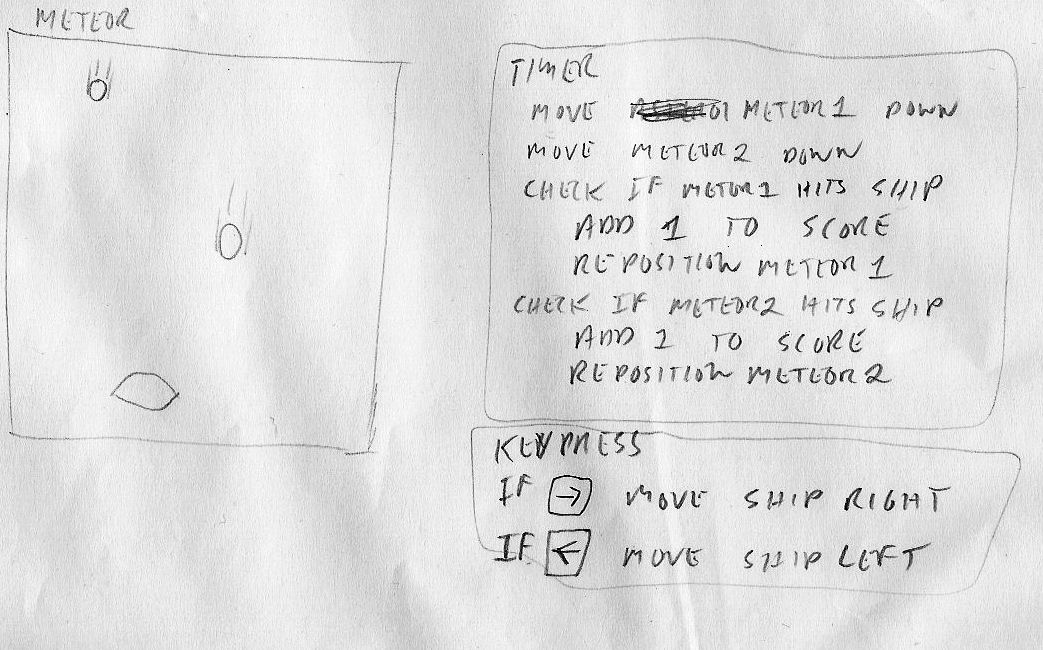 METEOR
TIMER
MOVE METEOR1 DOWN
MOVE METEOR2 DOWN
CHECK IF METOR1 HITS SHIP
ADD 1 TO SCORE
REPOSITION METEOR1
CHECK IF METEOR2 HITS SHIP
ADD 1 TO SCORE
REPOSITION METEOR2
KEYPRESS
IF → MOVE SHIP RIGHT
IF ← MOVE SHIP LEFT